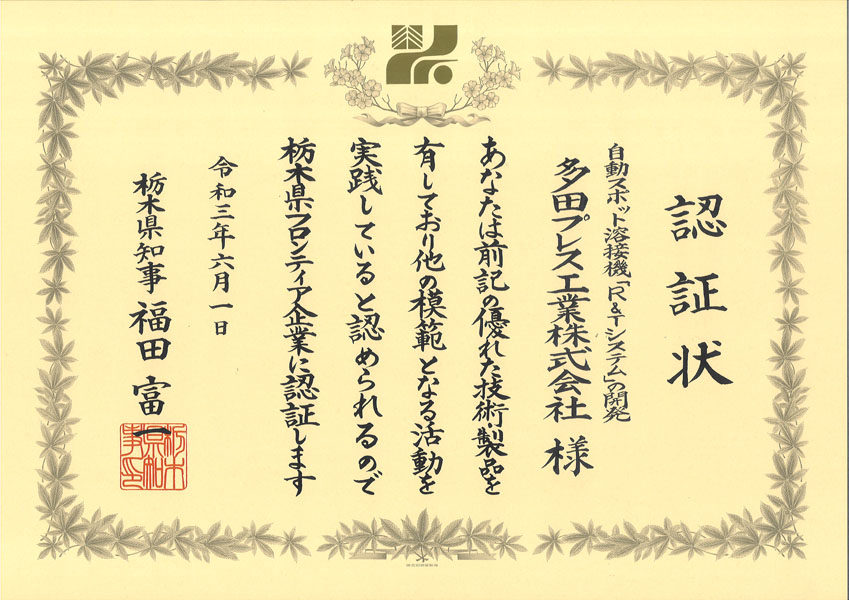 認証状
自動スポット溶接機「R&Tシステム」の開発
多田プレス工業株式会社 様
あなたは前記の優れた技術製品を
有しており他の模範となる活動を
実践していると認められるので
栃木県フロンティア企業に認証します
令和三年六月一日
栃木県知事 福田 富一